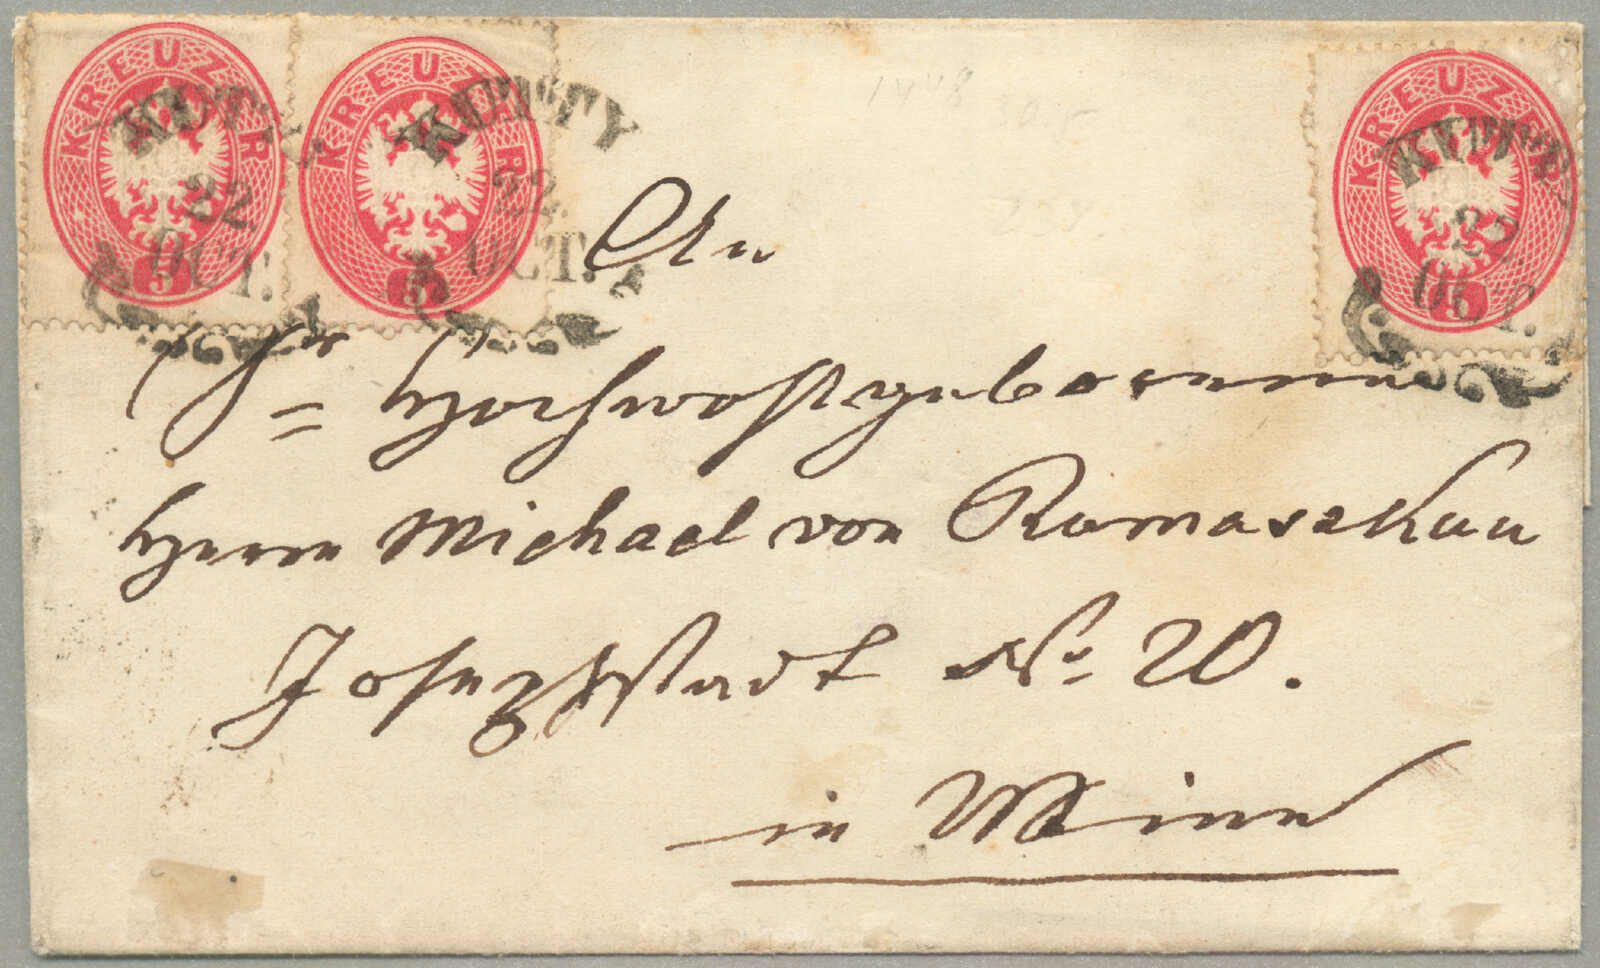 KREUZER 5
KREUZER 5
KREUZER 5
KUTTY
22.
OCT.
KUTTY
22.
OCT.
KUTTY
22.
OCT.
An
Sr Hochwohlgeborenen
Herrn Michael von Romaszkan
Josephstadt No 20.
in Wien